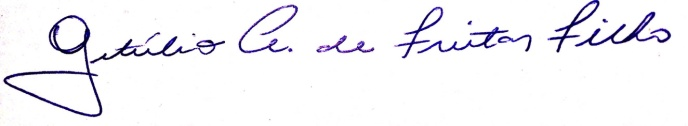 Getúlio A. de Freitas Filho